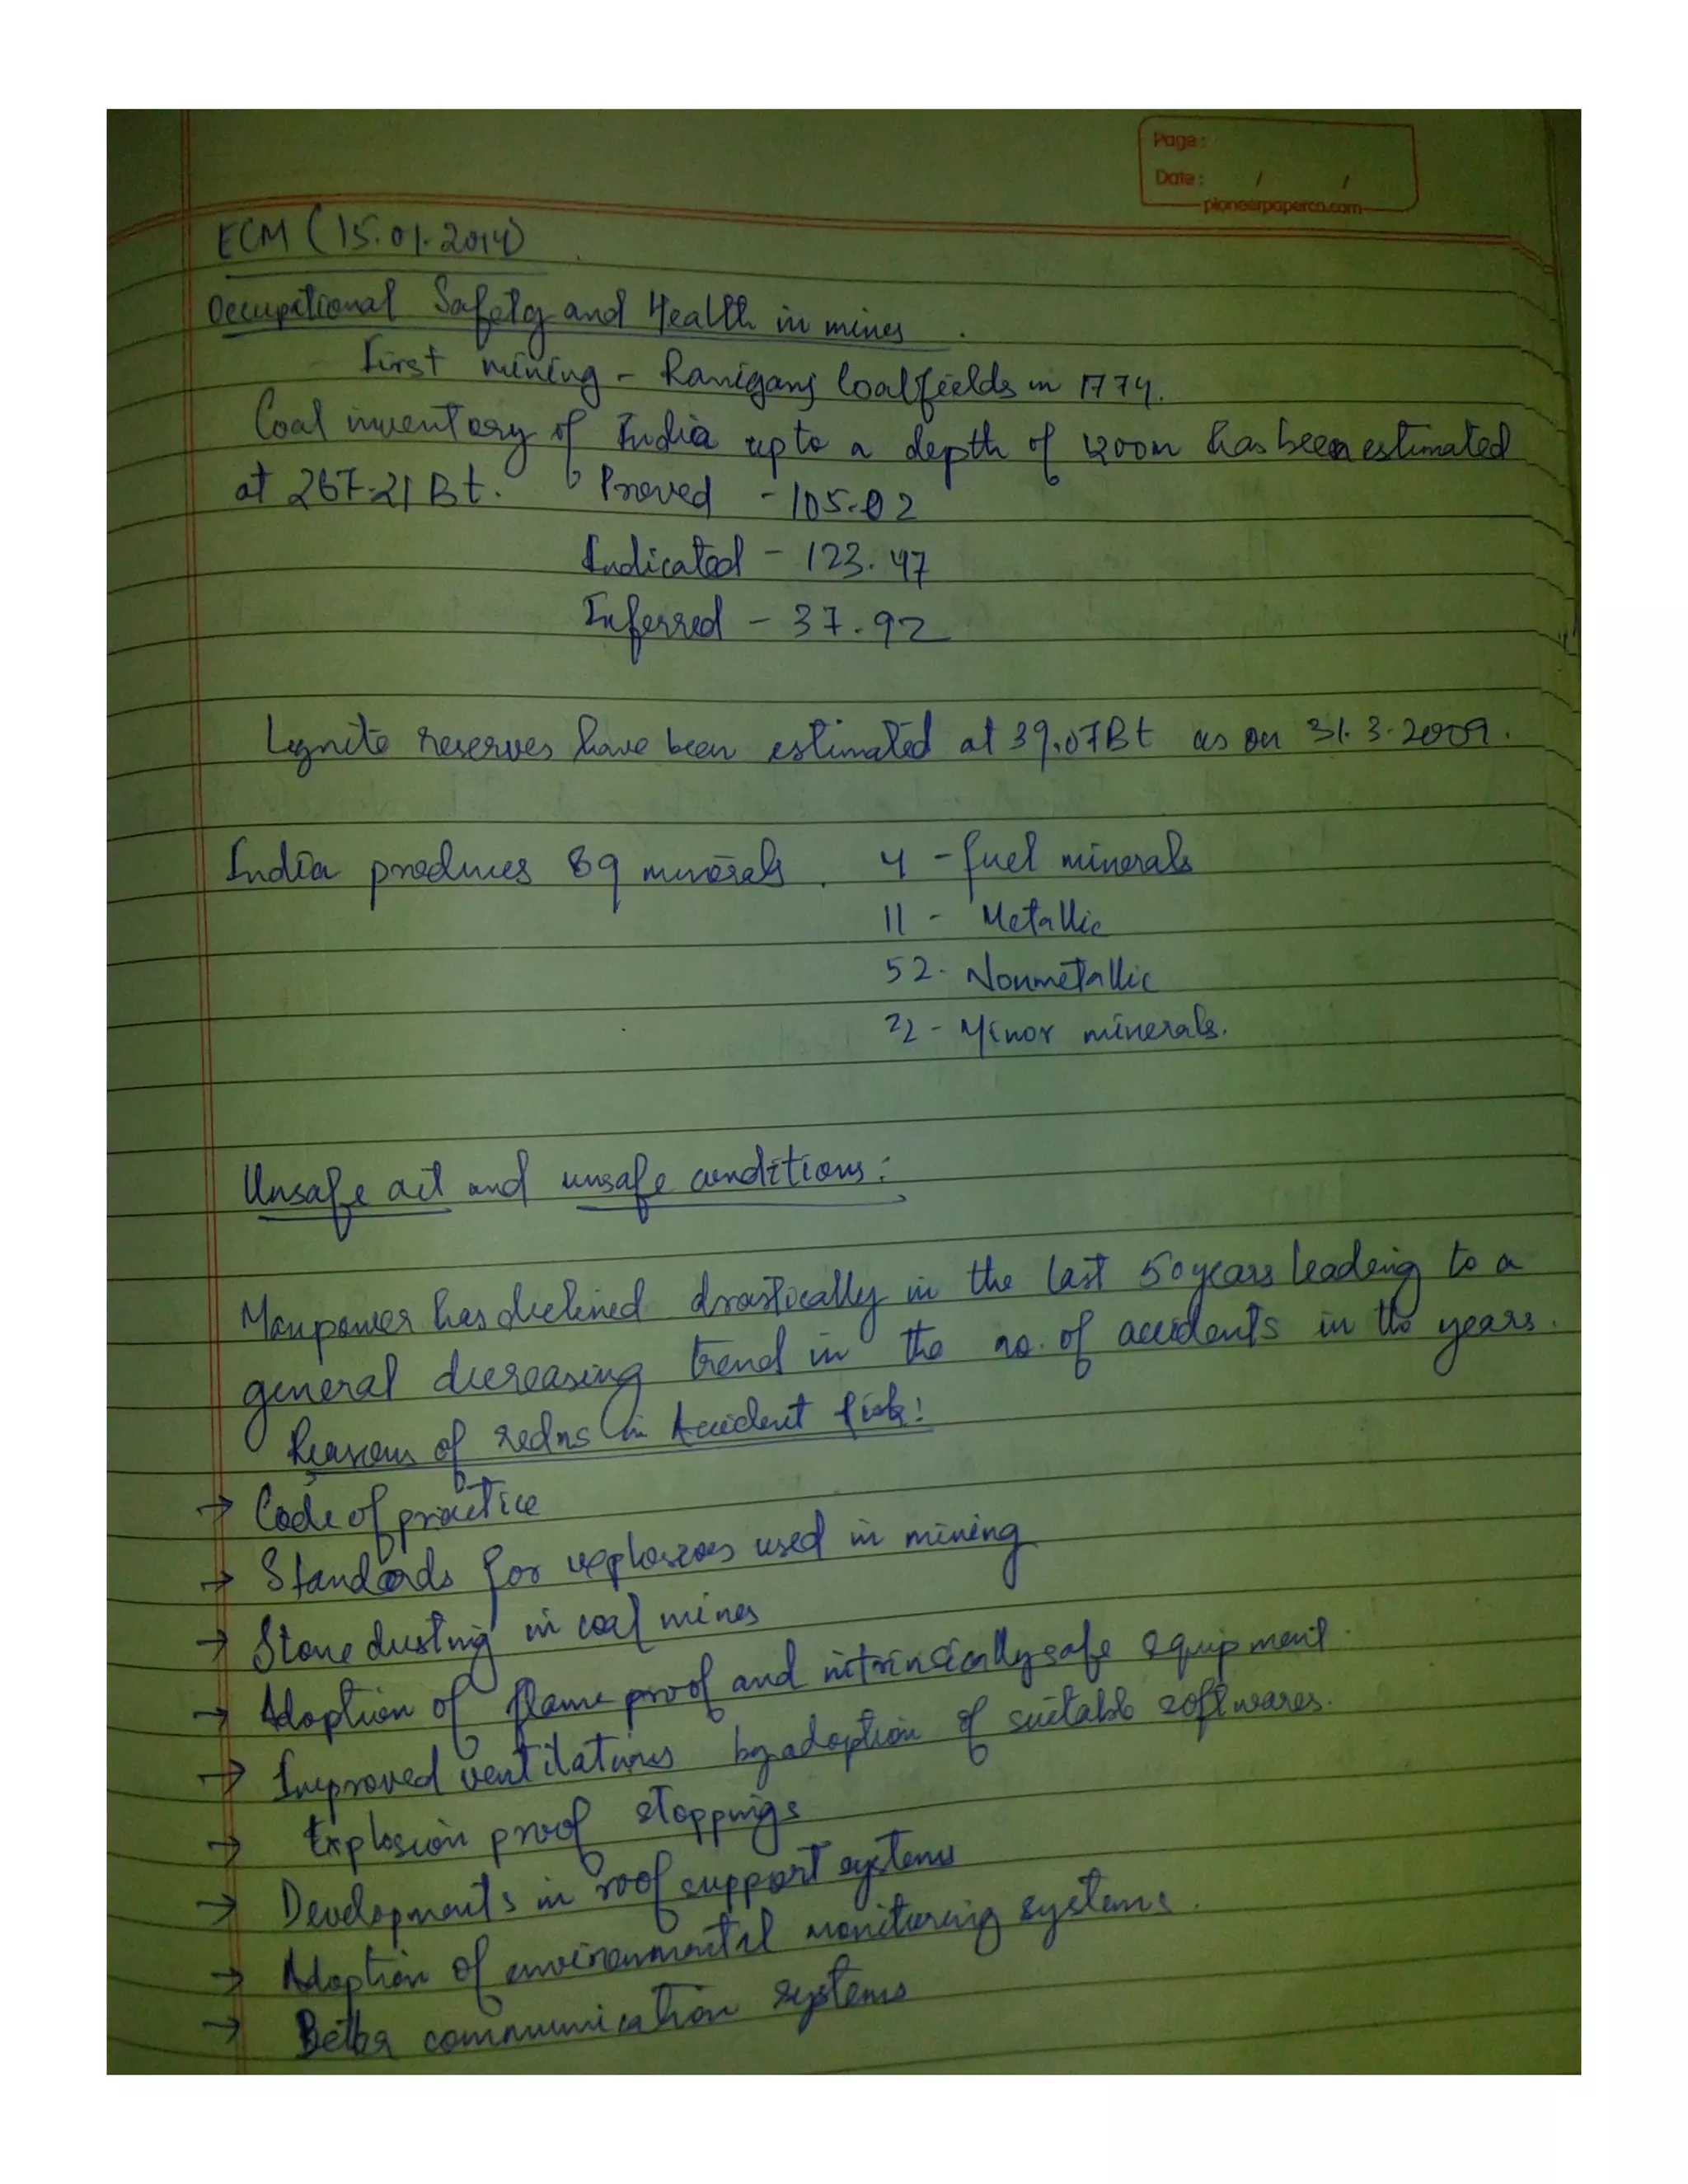 Page:
Date: / /
pioneerpaperco.com
ECM (15.01.2014)
Occupational Safety and Health in mines.
First mining - Raniganj Coalfields in 1774.
Coal inventory of India upto a depth of 1200m has been estimated
at 267.21 Bt. Proved - 105.02
Indicated - 123.47
Inferred - 37.92
Lignite reserves have been estimated at 39.07Bt as on 31.3.2009.
India produces 89 minerals. 4 - fuel minerals
11 - Metallic
52 - Nonmetallic
22 - Minor minerals.
Unsafe act and unsafe conditions:
Manpower has declined drastically in the last 50 years leading to a
general decreasing trend in the no. of accidents in the years.
Reasons of redns in Accident Risk:
→ Code of practice
→ Standards for explosives used in mining
→ Stone dusting in coal mines
→ Adoption of flame proof and intrinsically safe equipment.
→ Improved ventilations by adoption of suitable softwares.
→ Explosion proof stoppings
→ Developments in roof support systems
→ Adoption of environmental monitoring systems.
→ Better communication systems